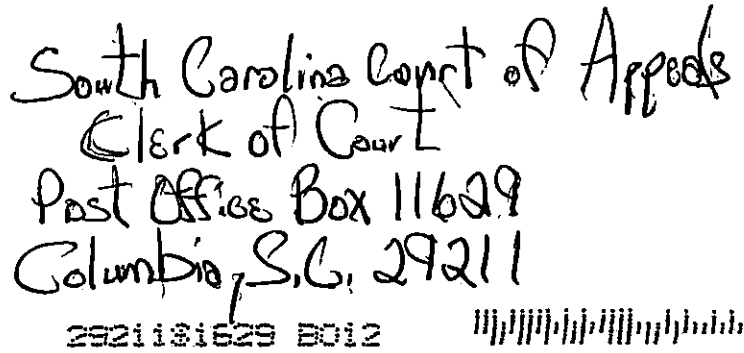 South Carolina Court of Appeals
Clerk of Court
Post Office Box 11629
Columbia, S.C. 29211
2921131629 B012